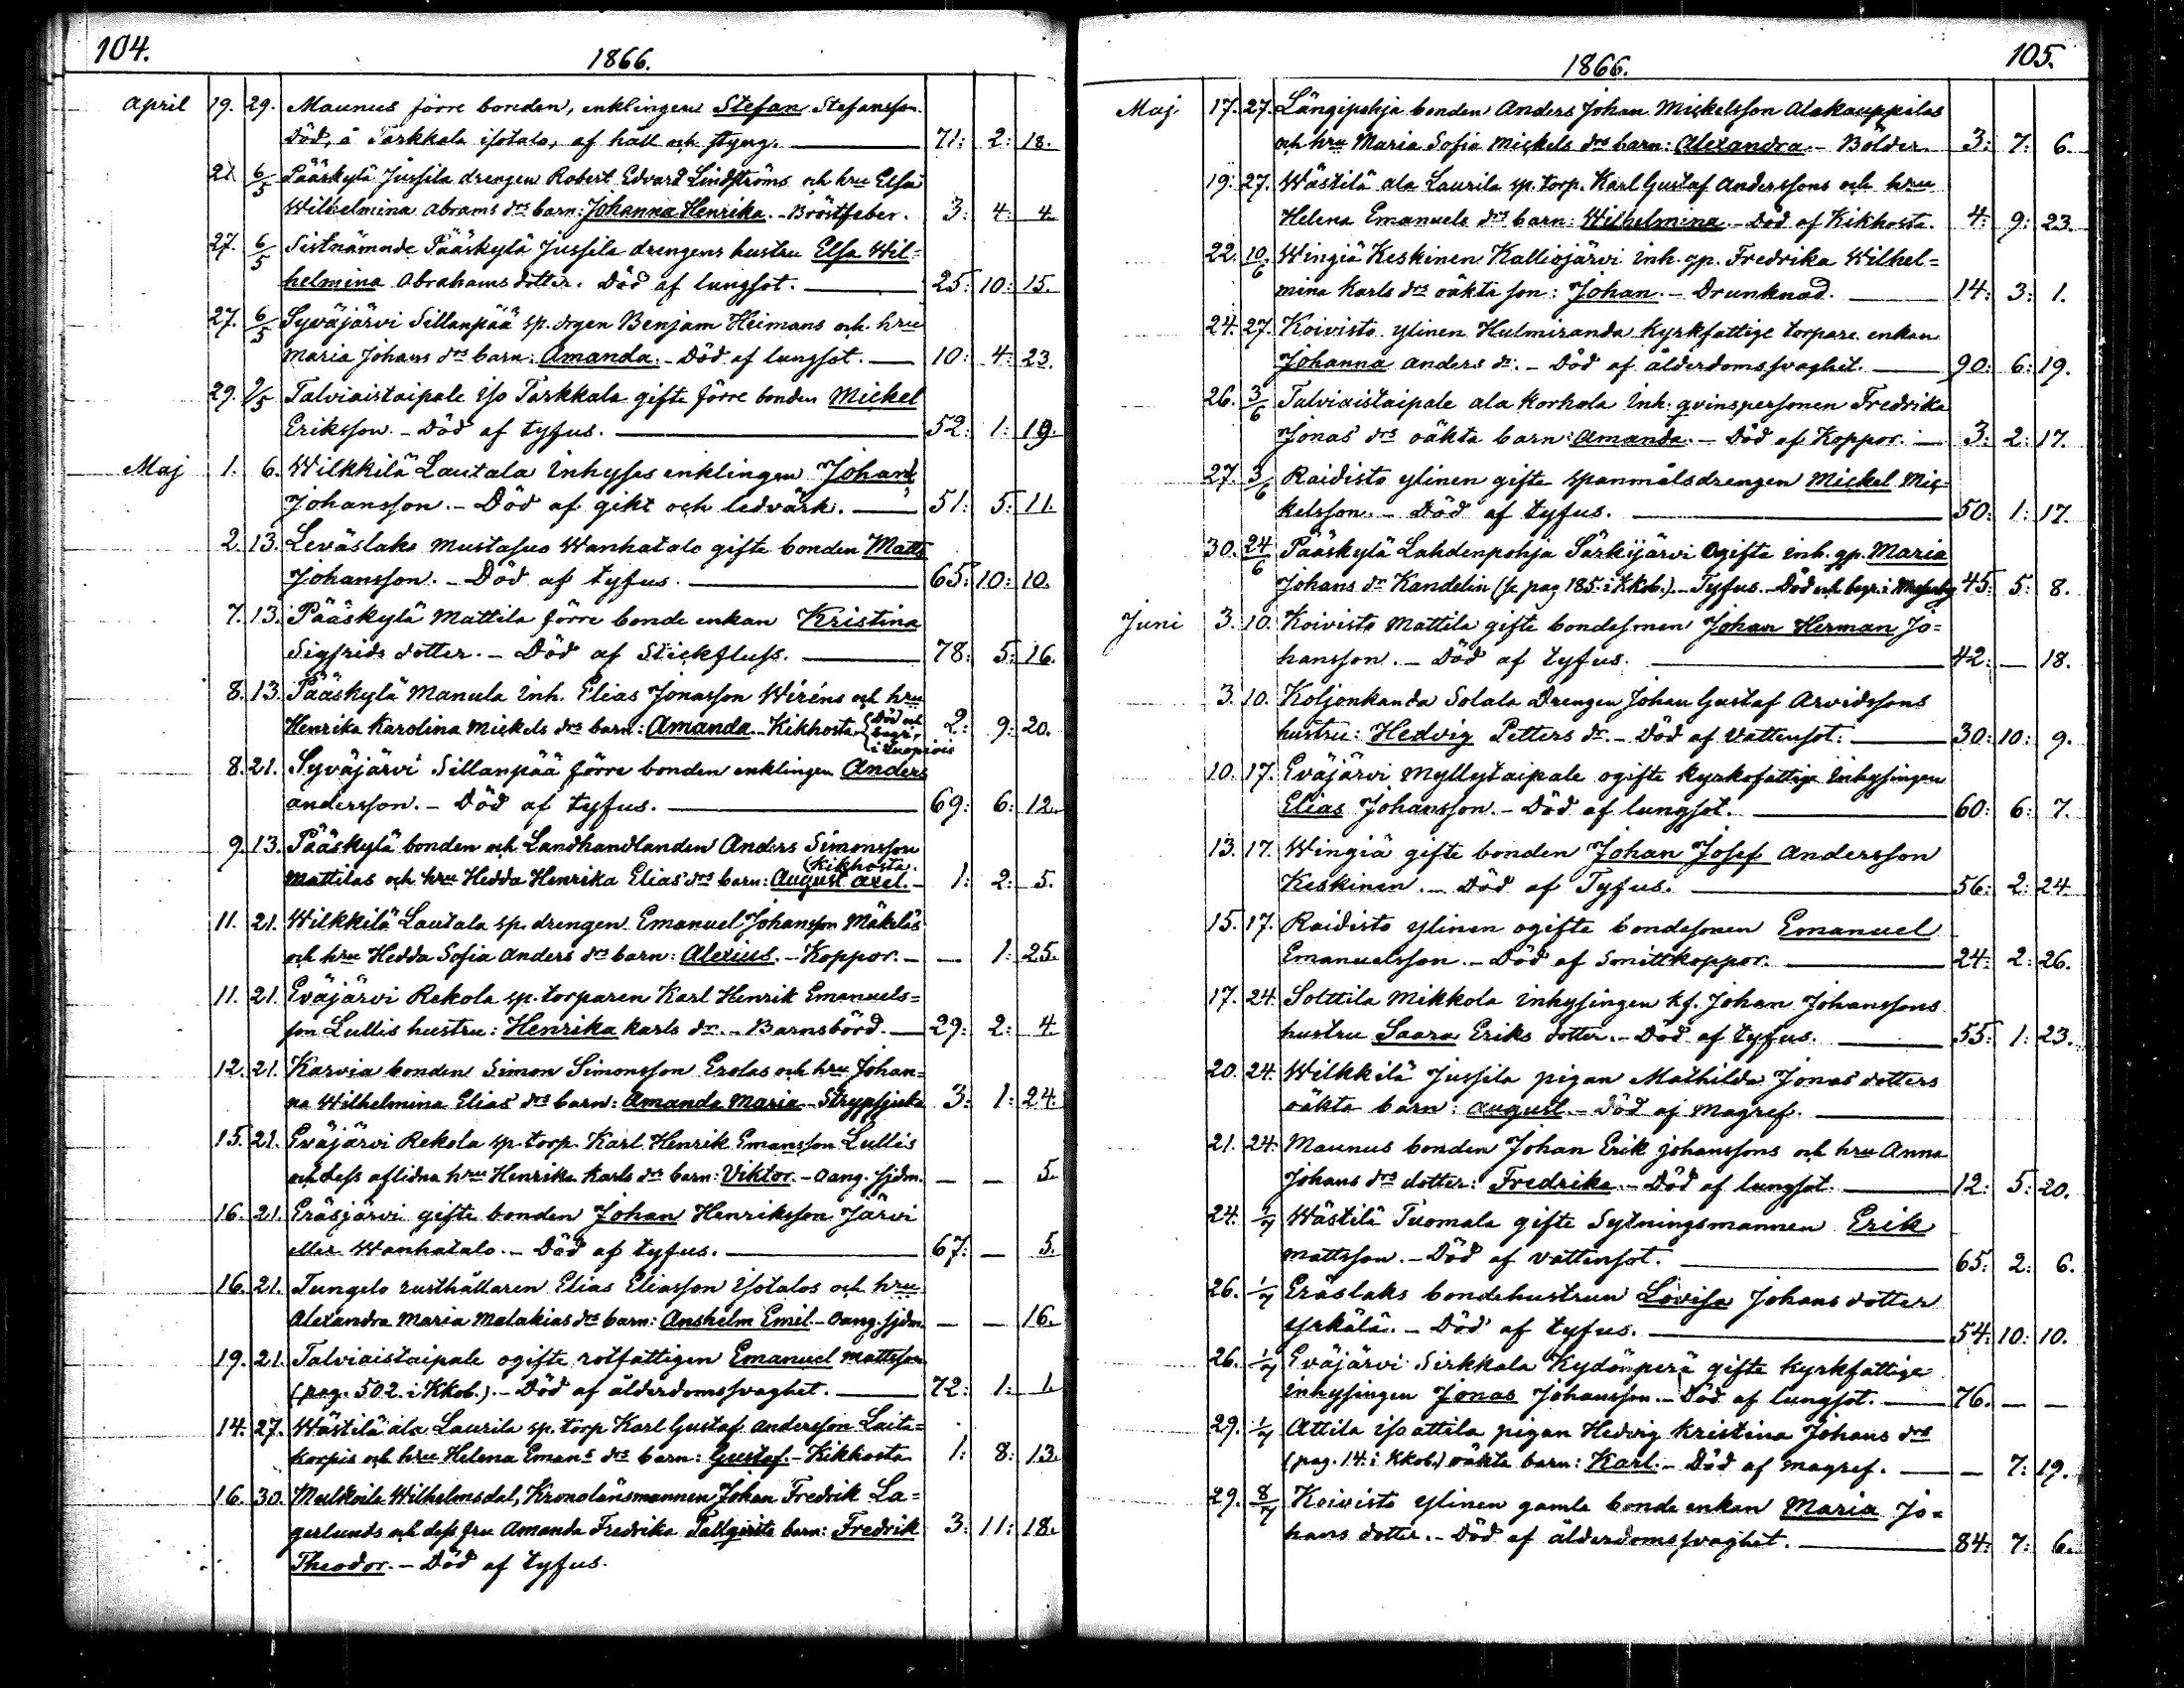 104.
1866.
April 19. 29. Maunus förre bonden, enklingen Stefan Stefansson.
Död, å Tarkkala isotalo, af håll och styng. 71: 2: 18.
21 6/5 Pääskylä Jussila drengen Robert Edvard Lindströms och hru Elsa
Wilhelmina Abrams drs barn: Johanna Henrika. - Bröstfeber. 3: 4: 4
27. 6/5 Sistnämnde Pääskylä Jussila drengens hustru Elsa Wil=
helmina Abrahams dotter. Död af lungsot. 25: 10: 15.
27. 6/5 Syväjärvi Sillanpää sp. drgen Benjam Heimans och hru
Maria Johans drs barn: Amanda. - Död af lungsot. 10: 4: 23.
29. 9/5 Talviaistaipale iso Tarkkala gifte förre bonden Mickel
Eriksson. - Död af tyfus. 52: 1: 19.
Maj 1. 6. Wilkkilä Lautala Inhyses enklingen Johan
Johansson. - Död af gikt och ledvärk. 51: 5: 11.
2. 13. Leväslaks Mustasuo Wanhatalo gifte bonden Matts
Johansson. - Död af tyfus. 65: 10: 10.
7. 13. Pääskylä Mattila förre bonde enkan Kristina
Sigfrids dotter. - Död af Stickfluss. 78: 5: 16.
8. 13. Pääskylä Manula Inh. Elias Jonasson Wiréns och hru
Henrika Karolina Mickels drs barn: Amanda. - Kikhosta. (Död och begr. i Luopiois 2: 9: 20.
8. 21. Syväjärvi Sillanpää förre bonden enklingen Anders
Andersson. - Död af tyfus. 69: 6: 12.
9. 13. Pääskylä bonden och Landhandlanden Anders Simonsson
(Kikhosta.
Mattilas och hru Hedda Henrika Elias drs barn: August Axel. - 1: 2: 5.
11. 21. Wilkkilä Lautala sp. drengen Emanuel Johansson Mäkeläs
och hru Hedda Sofia Anders drs barn: Alexius. - Koppor. - — 1: 25.
11. 21. Eväjärvi Rekola sp. torparen Karl Henrik Emanuels=
son Lullis hustru: Henrika Karls dr. - Barnsbörd. 29: 2: 4.
12. 21. Karvia bonden Simon Simonsson Erolas och hru Johan=
na Wilhelmina Elias drs barn: Amanda Maria - Strypsjuka 3: 1: 24.
15. 21. Eväjärvi Rekola sp. torp. Karl Henrik Emansson Lullis
och dess aflidna hru Henrika Karls drs barn: Viktor. - Oang. sjdm. — — 5.
16. 21. Eräsjärvi gifte bonden Johan Henriksson Järvi
eller Wanhatalo. - Död af tyfus. 67: — 5.
16. 21. Tungelo rusthållaren Elias Eliasson Isotalos och hru
Alexandra Maria Malakias drs barn: Anshelm Emil. - Oang. sjdm. — — 16.
19. 21. Talviaistaipale ogifte rotfattigen Emanuel Mattsson
(pag. 502. i Kkob.). - Död af ålderdomssvaghet. 72: 1: 1.
14. 27. Wästilä ala Laurila sp. torp Karl Gustaf Andersson Laita=
korpis och hru Helena Emans drs barn: Gustaf. - Kikhosta 1: 8: 13.
16. 30. Mulkoila Wilhelmsdal, Kronolänsmannen Johan Fredrik La=
gerlunds och dess fru Amanda Fredrika Tallqvists barn: Fredrik 3: 11: 18.
Theodor. - Död af tyfus.
1866.
105.
Maj 17. 27. Längipohja bonden Anders Johan Mickelsson Alakauppilas
och hru Maria Sofia Mickels drs barn: Alexandra. - Bölder. 3: 7: 6.
19. 27. Wästilä ala Laurila sp. torp. Karl Gustaf Anderssons och hru
Helena Emanuels drs barn: Wilhelmina. - Död af Kikhosta. 4: 9: 23.
22. 10/6 Wingiä Keskinen Kalliojärvi Inh. qp. Fredrika Wilhel=
mina Karls drs oäkta son: Johan. - Drunknad. 14: 3: 1.
24. 27. Koivisto ylinen Hulmiranda kyrkfattige torpare enkan
Johanna Anders dr. - Död af ålderdomssvaghet. 90: 6: 19.
26. 3/6 Talviaistaipale ala Korhola Inh. qvinspersonen Fredrika
Jonas drs oäkta barn: Amanda. - Död af Koppor. 3: 2: 17.
27. 3/6 Raidisto ylinen gifte spanmålsdrengen Mickel Mic=
kelsson. - Död af tyfus. 50: 1: 17.
30. 24/6 Pääskylä Lahdenpohja Särkijärvi Ogifta Inh. qp. Maria
Johans dr Kandelin (se pag 185. i Kkob.). - Tyfus. - Död och begr. i 45: 5: 8.
Juni 3. 10. Koivisto Mattila gifte bondesonen Johan Herman Jo=
hansson. - Död af tyfus. 42: — 18.
3. 10. Koljonkanda Solala Drengen Johan Gustaf Arvidssons
hustru: Hedvig Petters dr. - Död af Vattensot. 30: 10: 9.
10. 17. Eväjärvi Myllytaipale ogifte kyrkofattige Inhysingen
Elias Johansson. - Död af lungsot. 60: 6: 7.
13. 17. Wingiä gifte bonden Johan Josef Andersson
Keskinen. - Död af Tyfus. 56: 2: 24
15. 17. Raidisto ylinen ogifte bondesonen Emanuel
Emanuelsson. - Död af Smittkoppor. 24: 2: 26.
17. 24. Solttila Mikkola Inhysingen kf. Johan Johanssons
hustru Saara Eriks dotter. - Död af tyfus. 55: 1: 23.
20. 24. Wilkkilä Jussila pigan Mathilda Jonas dotters
oäkta barn: August. - Död af magref.
21. 24. Maunus bonden Johan Erik Johanssons och hru Anna
Johans drs dotter: Fredrika. - Död af lungsot. 12: 5: 20.
24. 1/7 Wästilä Tuomala gifte Sytningsmannen Erik
Mattsson. - Död af vattensot. 65: 2: 6.
26. 1/7 Eräslaks bondehustrun Lovisa Johans dotter
Yrkälä. - Död af tyfus. 54: 10: 10.
26. 1/7 Eväjärvi Sirkkala Kydönperä gifte kyrkfattige
inhysingen Jonas Johansson. - Död af lungsot. 76. — —
29. 1/7 Attila iso attila pigan Hedvig Kristina Johans drs
(pag. 14. i Kkob.) oäkta barn: Karl. - Död af magref. — 7: 19.
29. 8/7 Koivisto ylinen gamla bonde enkan Maria Jo=
hans dotter. - Död af ålderdomssvaghet. 84: 7: 6.